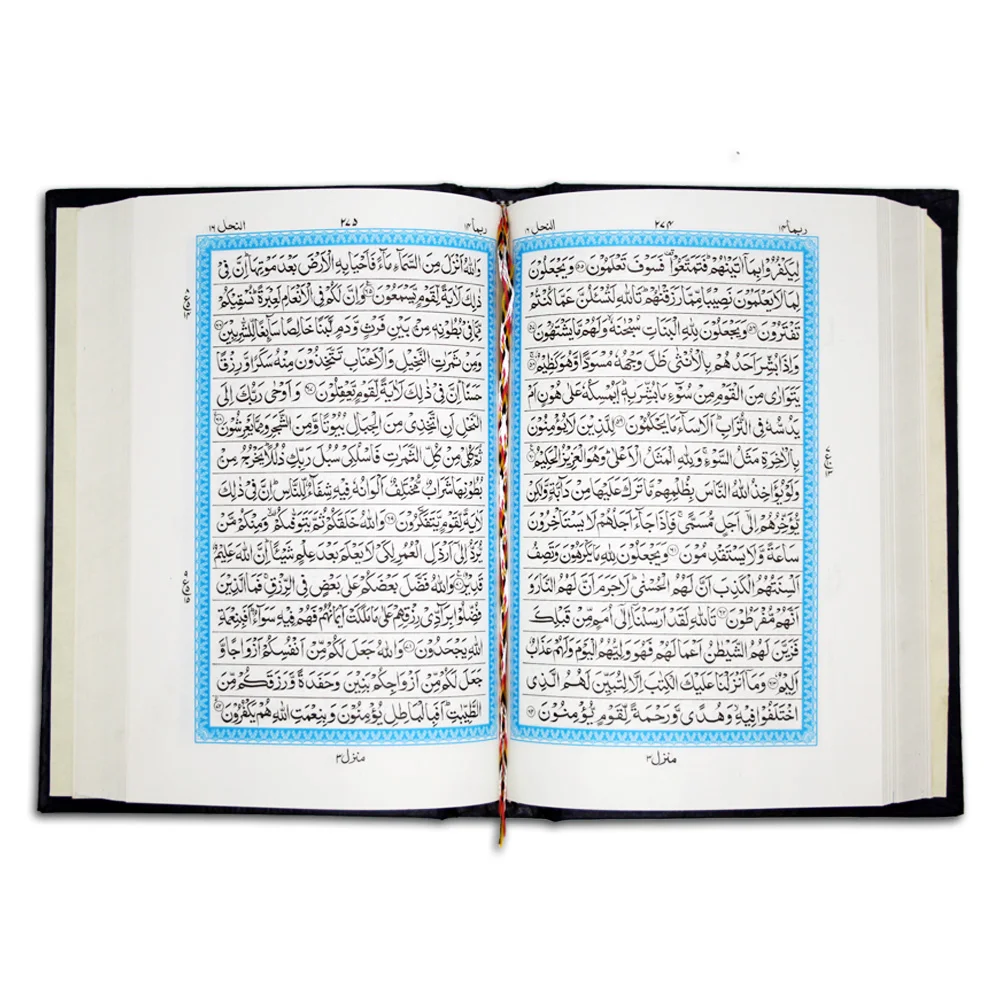 ربما۱۴ ۲۷۴ النحل ۱۶
لِيَكْفُرُوْا بِمَاۤ اٰتَيْنٰهُمْ ؕ فَتَمَتَّعُوْا ۫ فَسَوْفَ تَعْلَمُوْنَ ﴿۵۵﴾ وَيَجْعَلُوْنَ
لِمَا لَا يَعْلَمُوْنَ نَصِيْبًا مِّمَّا رَزَقْنٰهُمْ ؕ تَاللّٰهِ لَتُسْـَٔلُنَّ عَمَّا كُنْتُمْ
تَفْتَرُوْنَ ﴿۵۶﴾ وَيَجْعَلُوْنَ لِلّٰهِ الْبَنٰتِ سُبْحٰنَهٗ ۙ وَلَهُمْ مَّا يَشْتَهُوْنَ ﴿۵۷﴾
وَاِذَا بُشِّرَ اَحَدُهُمْ بِالْاُنْثٰى ظَلَّ وَجْهُهٗ مُسْوَدًّا وَّهُوَ كَظِيْمٌ ﴿۵۸﴾
يَتَوَارٰى مِنَ الْقَوْمِ مِنْ سُوْٓءِ مَا بُشِّرَ بِهٖ ؕ اَيُمْسِكُهٗ عَلٰى هُوْنٍ اَمْ
يَدُسُّهٗ فِى التُّرَابِ ؕ اَلَا سَآءَ مَا يَحْكُمُوْنَ ﴿۵۹﴾ لِلَّذِيْنَ لَا يُؤْمِنُوْنَ
بِالْاٰخِرَةِ مَثَلُ السَّوْءِ ۚ وَلِلّٰهِ الْمَثَلُ الْاَعْلٰى ؕ وَهُوَ الْعَزِيْزُ الْحَكِيْمُ ﴿۶۰﴾
وَلَوْ يُؤَاخِذُ اللّٰهُ النَّاسَ بِظُلْمِهِمْ مَّا تَرَكَ عَلَيْهَا مِنْ دَآبَّةٍ وَّلٰكِنْ
يُّؤَخِّرُهُمْ اِلٰٓى اَجَلٍ مُّسَمًّى ۚ فَاِذَا جَآءَ اَجَلُهُمْ لَا يَسْتَاْخِرُوْنَ
سَاعَةً وَّلَا يَسْتَقْدِمُوْنَ ﴿۶۱﴾ وَيَجْعَلُوْنَ لِلّٰهِ مَا يَكْرَهُوْنَ وَتَصِفُ
اَلْسِنَتُهُمُ الْكَذِبَ اَنَّ لَهُمُ الْحُسْنٰى ؕ لَا جَرَمَ اَنَّ لَهُمُ النَّارَ وَ
اَنَّهُمْ مُّفْرَطُوْنَ ﴿۶۲﴾ تَاللّٰهِ لَقَدْ اَرْسَلْنَاۤ اِلٰٓى اُمَمٍ مِّنْ قَبْلِكَ
فَزَيَّنَ لَهُمُ الشَّيْطٰنُ اَعْمَالَهُمْ فَهُوَ وَلِيُّهُمُ الْيَوْمَ وَلَهُمْ عَذَابٌ
اَلِيْمٌ ﴿۶۳﴾ وَمَاۤ اَنْزَلْنَا عَلَيْكَ الْكِتٰبَ اِلَّا لِتُبَيِّنَ لَهُمُ الَّذِى
اخْتَلَفُوْا فِيْهِ ۙ وَهُدًى وَّرَحْمَةً لِّقَوْمٍ يُّؤْمِنُوْنَ ﴿۶۴﴾
منزل ۳
ربما۱۴ ۲۷۵ النحل ۱۶
وَاللّٰهُ اَنْزَلَ مِنَ السَّمَآءِ مَآءً فَاَحْيَا بِهِ الْاَرْضَ بَعْدَ مَوْتِهَا ؕ اِنَّ فِىْ
ذٰلِكَ لَاٰيَةً لِّقَوْمٍ يَّسْمَعُوْنَ ﴿۶۵﴾ وَاِنَّ لَكُمْ فِى الْاَنْعَامِ لَعِبْرَةً ؕ نُسْقِيْكُمْ
مِّمَّا فِىْ بُطُوْنِهٖ مِنْۢ بَيْنِ فَرْثٍ وَّدَمٍ لَّبَنًا خَالِصًا سَآئِغًا لِّلشّٰرِبِيْنَ ﴿۶۶﴾
وَمِنْ ثَمَرٰتِ النَّخِيْلِ وَالْاَعْنَابِ تَتَّخِذُوْنَ مِنْهُ سَكَرًا وَّرِزْقًا
حَسَنًا ؕ اِنَّ فِىْ ذٰلِكَ لَاٰيَةً لِّقَوْمٍ يَّعْقِلُوْنَ ﴿۶۷﴾ وَاَوْحٰى رَبُّكَ اِلَى
النَّحْلِ اَنِ اتَّخِذِىْ مِنَ الْجِبَالِ بُيُوْتًا وَّمِنَ الشَّجَرِ وَمِمَّا يَعْرِشُوْنَ ﴿۶۸﴾
ثُمَّ كُلِىْ مِنْ كُلِّ الثَّمَرٰتِ فَاسْلُكِىْ سُبُلَ رَبِّكِ ذُلُلًا ؕ يَخْرُجُ مِنْۢ
بُطُوْنِهَا شَرَابٌ مُّخْتَلِفٌ اَلْوَانُهٗ فِيْهِ شِفَآءٌ لِّلنَّاسِ ؕ اِنَّ فِىْ ذٰلِكَ
لَاٰيَةً لِّقَوْمٍ يَّتَفَكَّرُوْنَ ﴿۶۹﴾ وَاللّٰهُ خَلَقَكُمْ ثُمَّ يَتَوَفّٰىكُمْ ۙ وَمِنْكُمْ مَّنْ
يُّرَدُّ اِلٰٓى اَرْذَلِ الْعُمُرِ لِكَىْ لَا يَعْلَمَ بَعْدَ عِلْمٍ شَيْـًٔا ؕ اِنَّ اللّٰهَ عَلِيْمٌ
قَدِيْرٌ ﴿۷۰﴾ وَاللّٰهُ فَضَّلَ بَعْضَكُمْ عَلٰى بَعْضٍ فِى الرِّزْقِ ۚ فَمَا الَّذِيْنَ
فُضِّلُوْا بِرَآدِّىْ رِزْقِهِمْ عَلٰى مَا مَلَكَتْ اَيْمَانُهُمْ فَهُمْ فِيْهِ سَوَآءٌ ؕ اَفَبِنِعْمَةِ
اللّٰهِ يَجْحَدُوْنَ ﴿۷۱﴾ وَاللّٰهُ جَعَلَ لَكُمْ مِّنْ اَنْفُسِكُمْ اَزْوَاجًا وَّ
جَعَلَ لَكُمْ مِّنْ اَزْوَاجِكُمْ بَنِيْنَ وَحَفَدَةً وَّرَزَقَكُمْ مِّنَ
الطَّيِّبٰتِ ؕ اَفَبِالْبَاطِلِ يُؤْمِنُوْنَ وَبِنِعْمَتِ اللّٰهِ هُمْ يَكْفُرُوْنَ ﴿۷۲﴾
منزل ۳